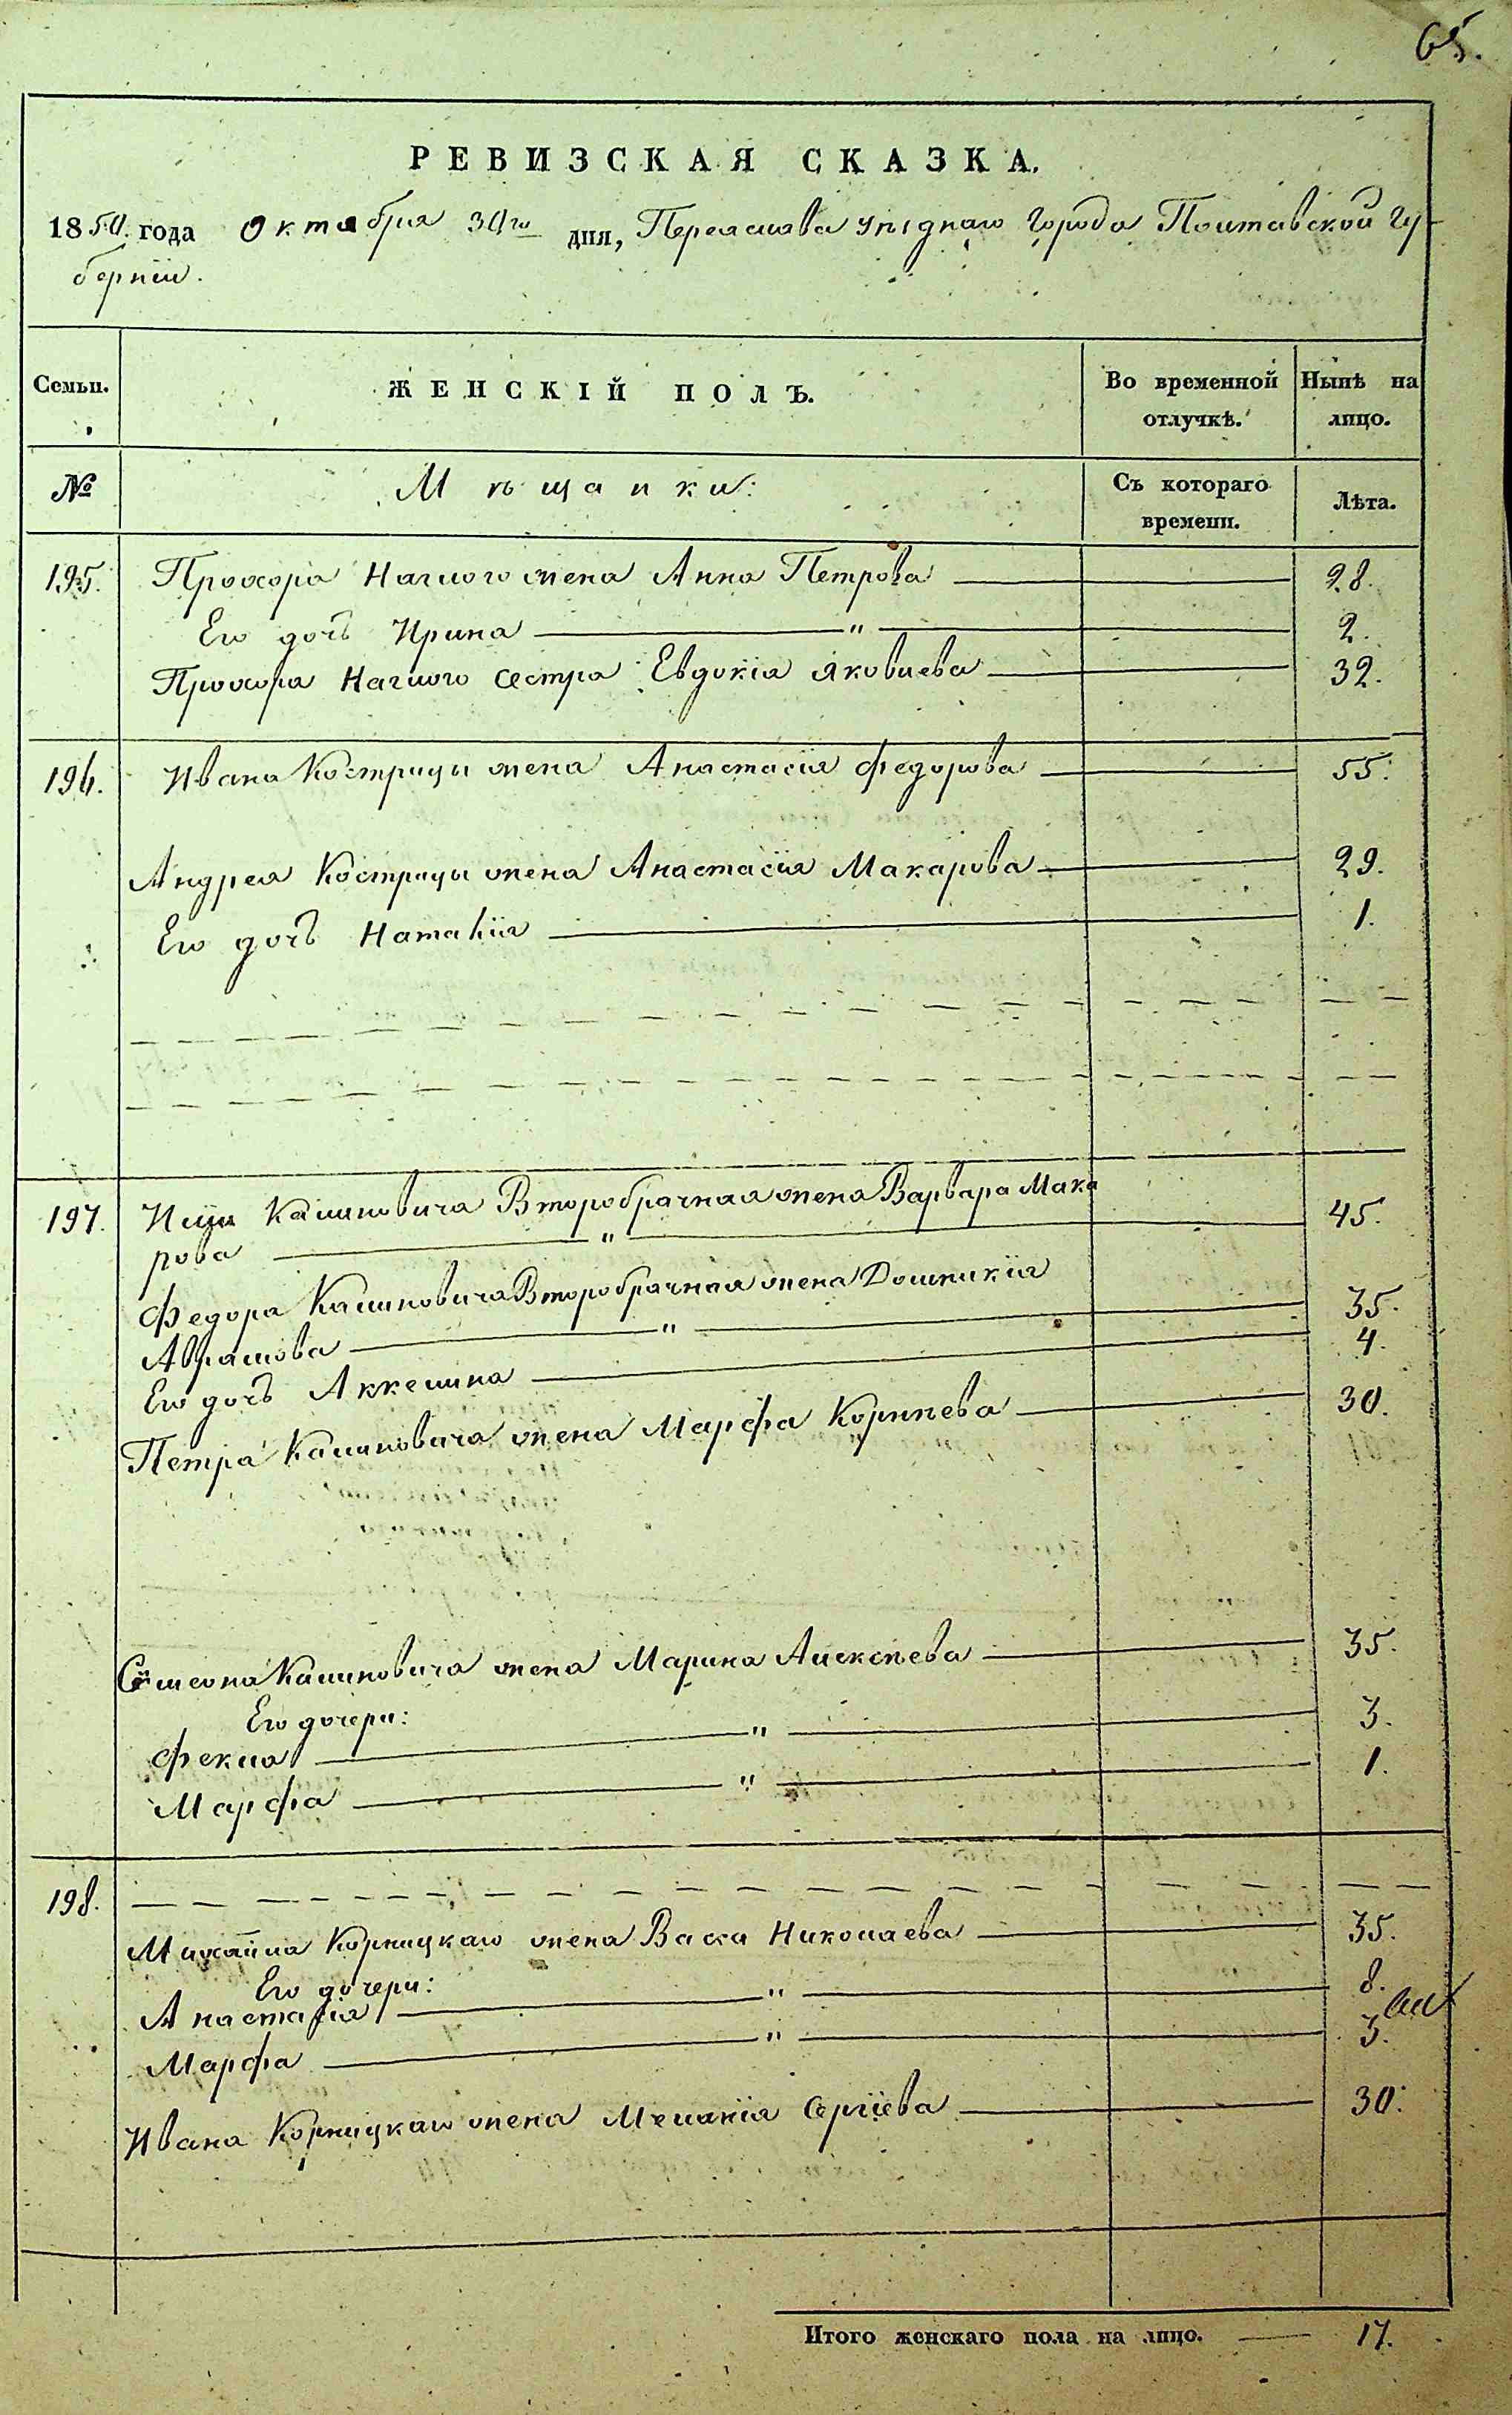 65.
РЕВИЗСКАЯ СКАЗКА.
1850. года Октября 30го дня, Переяслава уѣзднаго города Полтавской гу-
бернїи.
Семьи. ЖЕНСКІЙ ПОЛЪ. Во временной отлучкѣ. Нынѣ на лицо.
№ Мѣщанки: Съ котораго времени. Лѣта.
195. Прохора Наглого жена Анна Петрова 28.
Его дочь Ирина " 2.
Прохора Наглого сестра Евдокія Яковлева 32.
196. Ивана Кострицы жена Анастасія Федорова 55.
Андрея Кострицы жена Анастасїя Макарова 29.
Его дочь Наталїя 1.
197. Калиновича Второбрачная жена Варвара Мака
рова " 45.
Федора Калиновича Второбрачная жена Домникїя
Аврамова " 35.
Его дочь Аккелина 4.
Петра Калиновича жена Марфа Корнѣева 30.
Семеона Калиновича жена Марина Алексѣева 35.
Его дочери:
Фекла " 3.
Марфа " 1.
198.
Михайла Корницкаго жена Васса Николаева 35.
Его дочери:
Анастасїя " 8.
Марфа " 3.
Ивана Корницкаго жена Меланїя Сергїева 30.
Итого женскаго пола на лицо. 17.